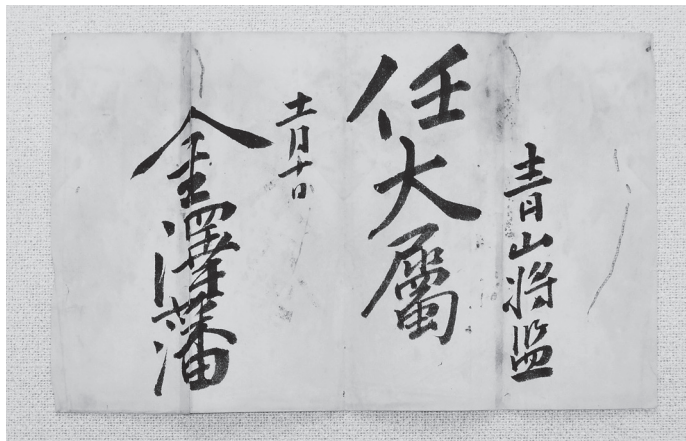 青山将監
任大屬
十一月十日
金澤藩